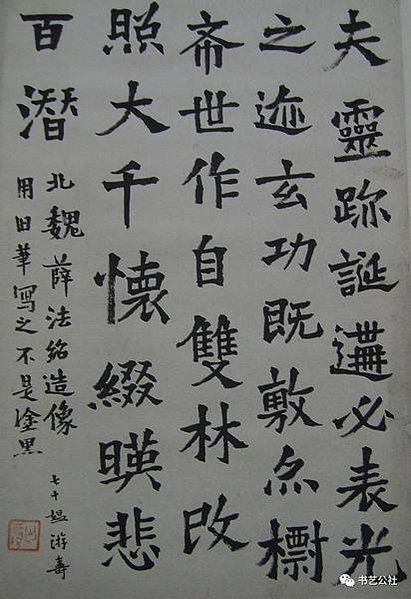 夫靈跡誕遘必表光
之迹玄功既敷尒檦
希世作自雙林改
照大千懷綴暎悲
百潛
北魏薛法紹造像
用旧筆寫之不是塗黑
七十媪游壽
书艺公社